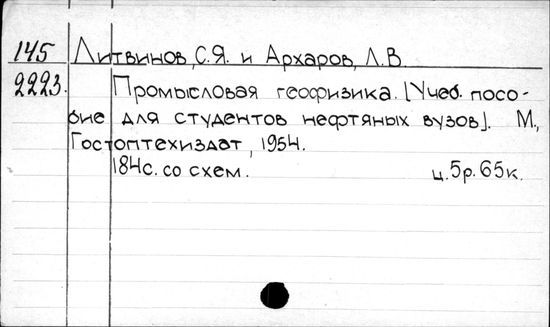 145 Литвинов, С.Я. и Архаров, Л.В.
2223. Промысловая геофизика. [Учеб. посо-
бие для студентов нефтяных вузов]. М.,
Гостоптехиздат, 1954.
184с. со схем. ц. 5р. 65к.